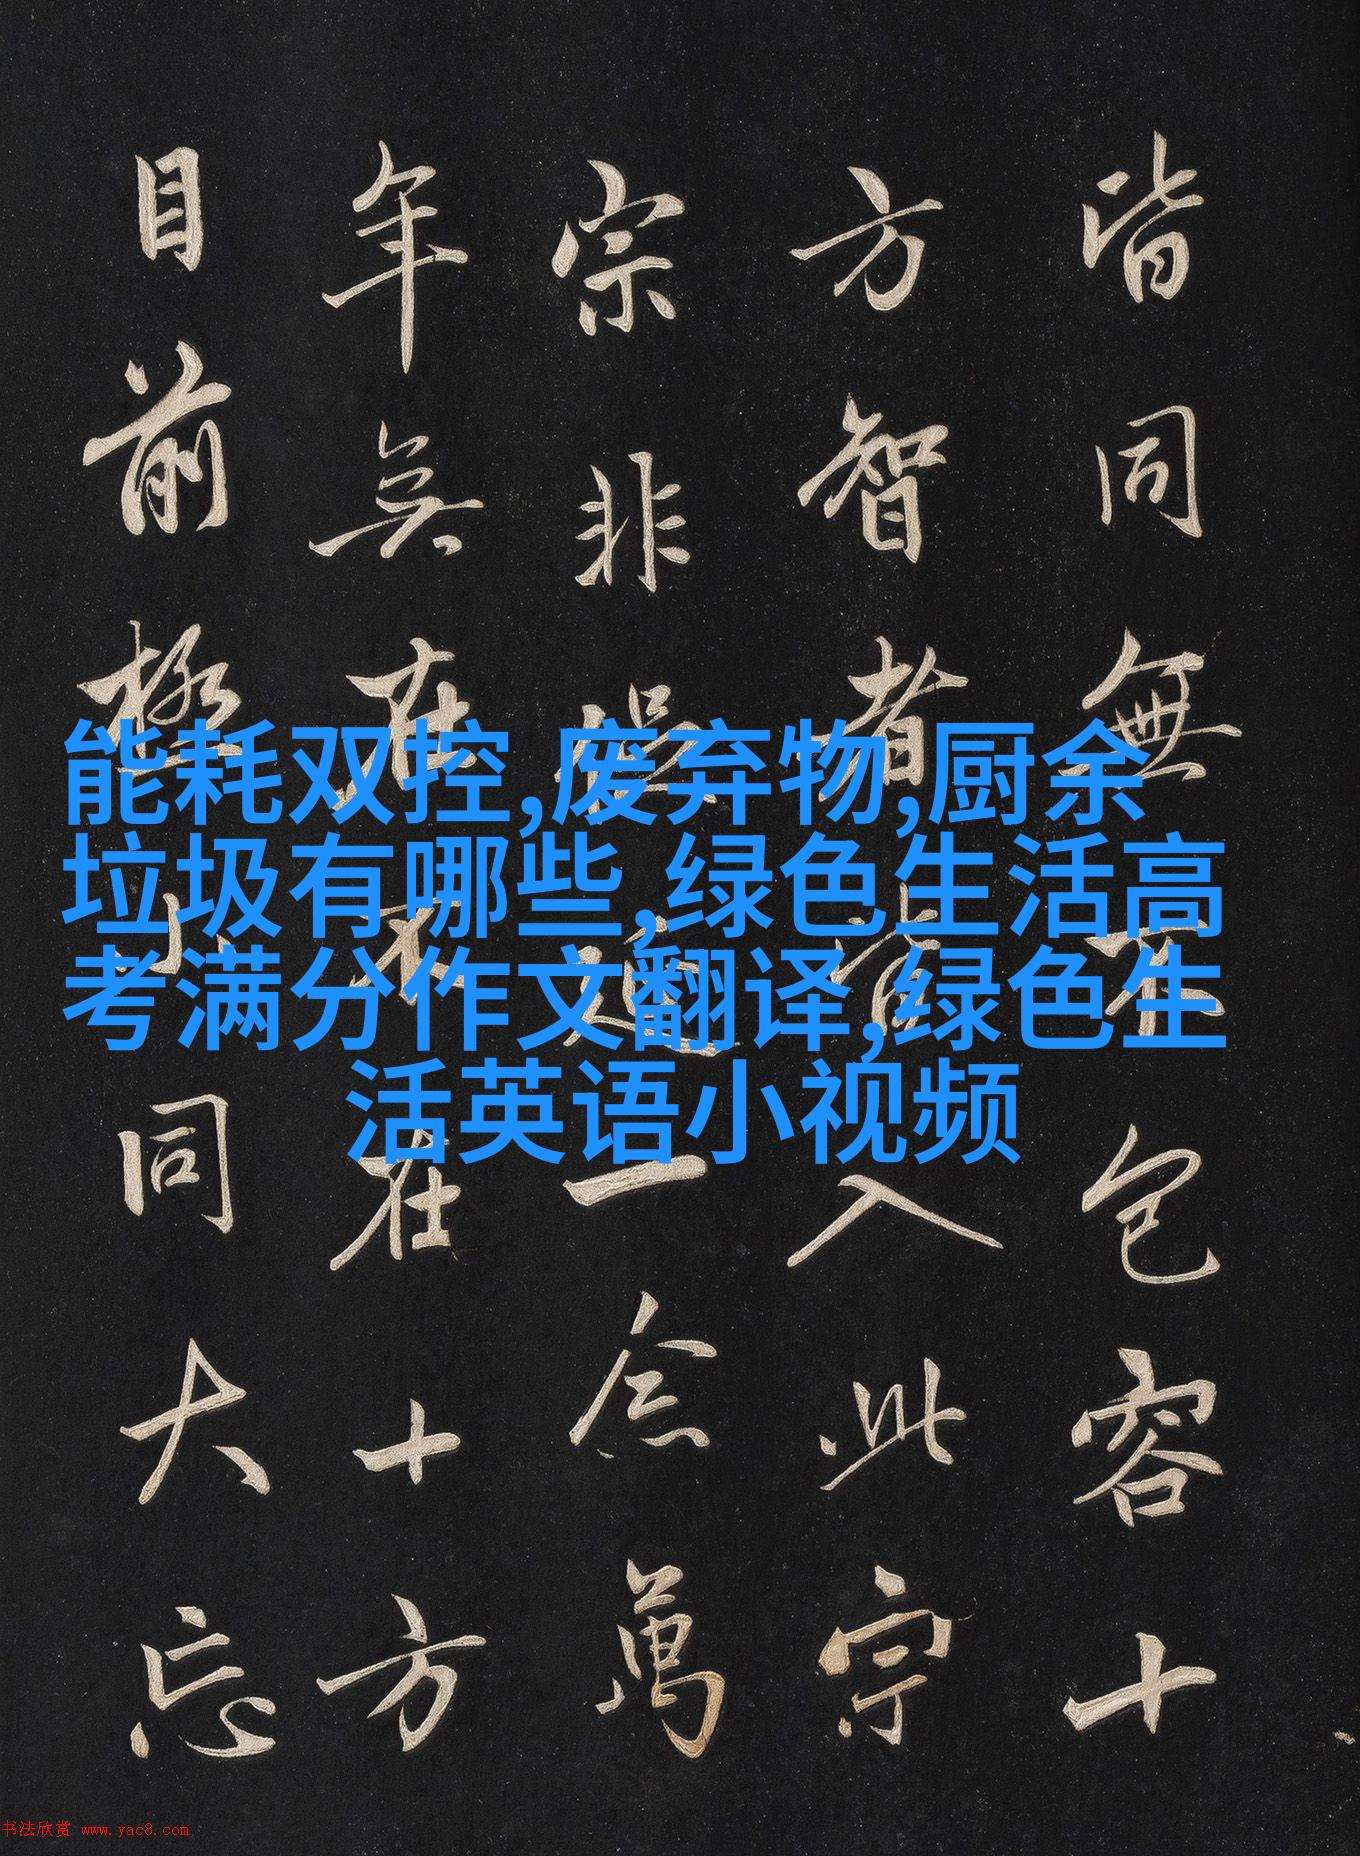 皆同無不包容十
方智者皆入此宗
宗非促延一念萬
年無在不在十方
目前極小同大忘
能耗双控,废弃物,厨余
垃圾有哪些,绿色生活高
考满分作文翻译,绿色生
活英语小视频
书法欣赏 www.yac8.com